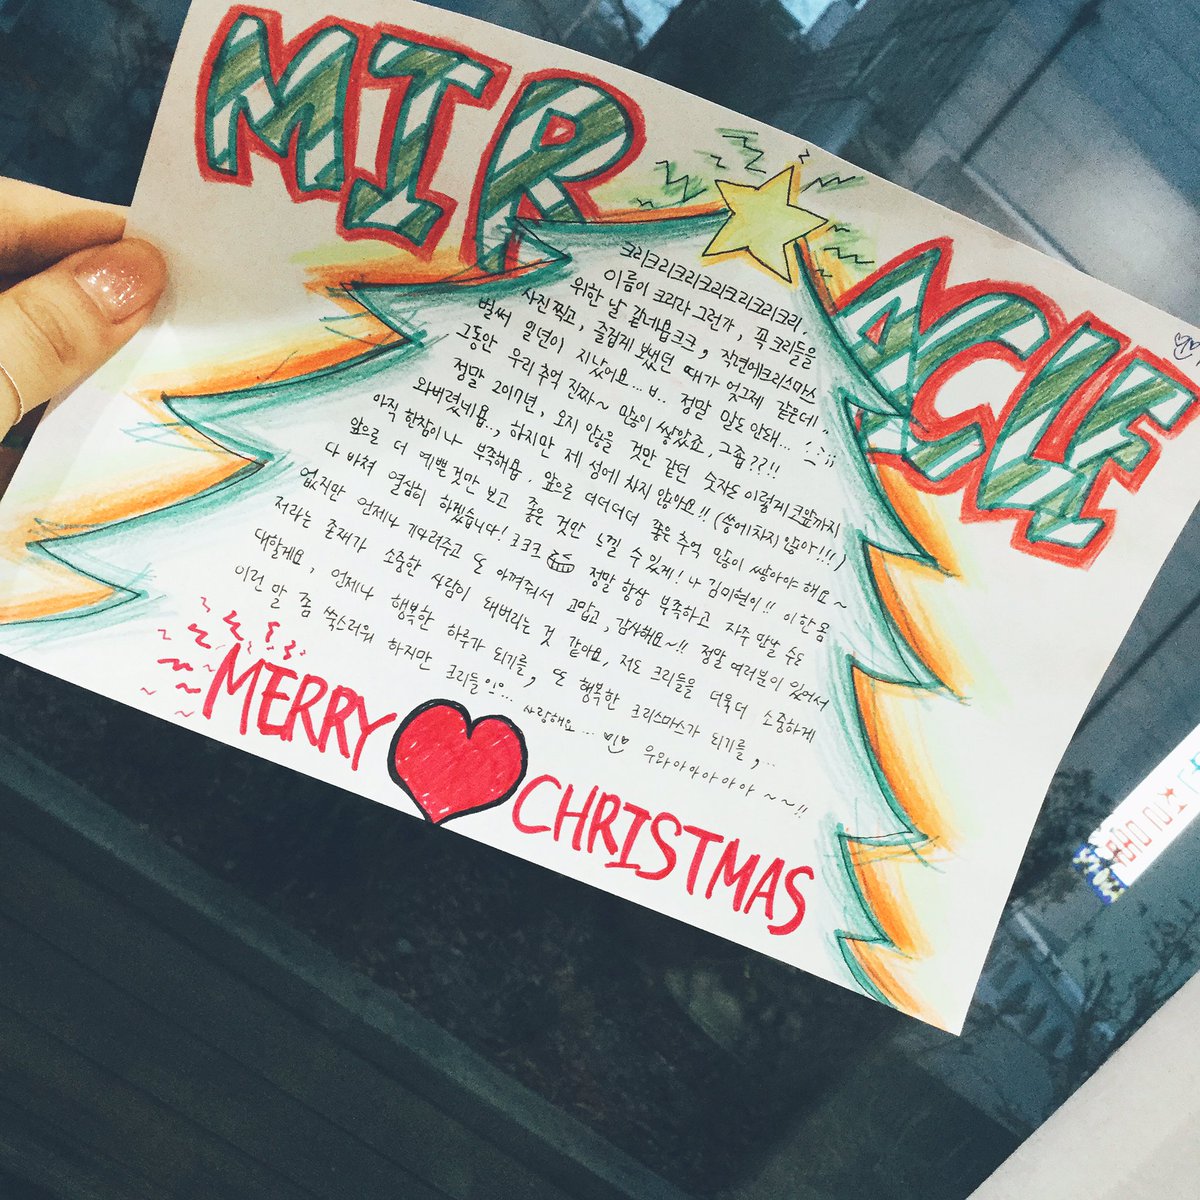 MIRACLE
크리크리크리크리크리크리크리,
이름이 크리라 그런가, 꼭 크리들을
위한 날 같네욥크크, 작년에크리스마스
사진찍고, 즐겁게 보냈던 때가 엊그제 같은데
벌써 일년이 지났어요... ㅂ.. 정말 말도 안돼...
그동안 우리 추억 진짜~ 많이 쌓았죠, 그쵸??!!
정말 2017년, 오지 않을 것만 같던 숫자도 이렇게 코앞까지
와버렸네욥.., 하지만 제 성에 차지 않아요!! (쏭에차지않아!!!)
아직 한참이나 부족해욥, 앞으로 더더더더 좋은 추억 많이 쌓아야 해요~
앞으로 더 예쁜 것만 보고 좋은 것만 느낄 수 있게! 나 김미현이!! 이 한 몸
다 바쳐 열심히 하겠습니다! 크크크 정말 항상 부족하고 자주 만날 수도
없지만 언제나 기다려주고 또 아껴줘서 고맙고, 감사해요~!! 정말 여러분이 있어서
저라는 존재가 소중한 사람이 돼버리는 것 같아요, 저도 크리들을 더욱더 소중하게
대할게요, 언제나 행복한 하루가 되기를, 또 행복한 크리스마스가 되기를,..
이런 말 좀 쑥스러워 하지만 크리들으으... 사랑해요... 우와아아아아아~~!!
MERRY CHRISTMAS